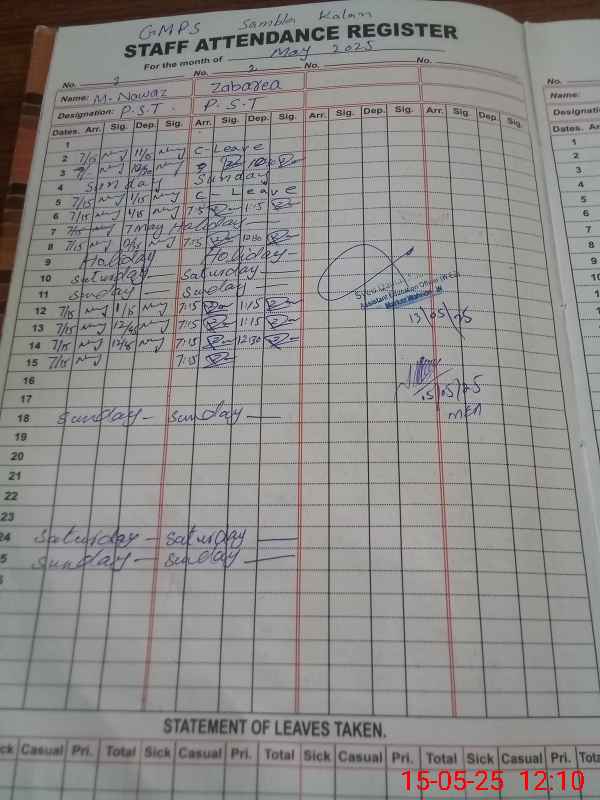 GMPS Sambla Kalan
STAFF ATTENDANCE REGISTER
For the month of May 2025
No. 1 No. 2 No. No.
Name: M. Nawaz Zabarea Name:
Designation: P.S.T. P.S.T Designation
Dates. Arr. Sig. Dep. Sig. Arr. Sig. Dep. Sig. Arr. Sig. Dep. Sig. Arr. Sig. Dep. Sig. Dates. Arr.
1 1
2 7/15 11/15 C-Leave 2
3 3
4 Sunday Sunday 4
5 7/15 1/15 C-Leave 5
6 7/15 1/15 7:15 1:15 6
7 7/15 7 May Holiday 7
8 7/15 7:15 10:30 8
9 Holiday Holiday 9
10 Saturday Saturday 10
11 Sunday Sunday
Assistant Education Officer (W-EE)
12 7/15 1/15 7:15 1:15 12
13/05/25
13 7/15 12/45 7:15 1:15 13
14 7/15 12/45 7:15 12:30 14
15 7/15 7:15 15
16 16
17 17
15/05/25
MEA
18 Sunday Sunday 18
19 19
20 20
21 21
22 22
23
24 Saturday Saturday
25 Sunday Sunday
STATEMENT OF LEAVES TAKEN.
Sick Casual Pri. Total Sick Casual Pri. Total Sick Casual Pri. Total Sick Casual Pri. Total
15-05-25 12:10